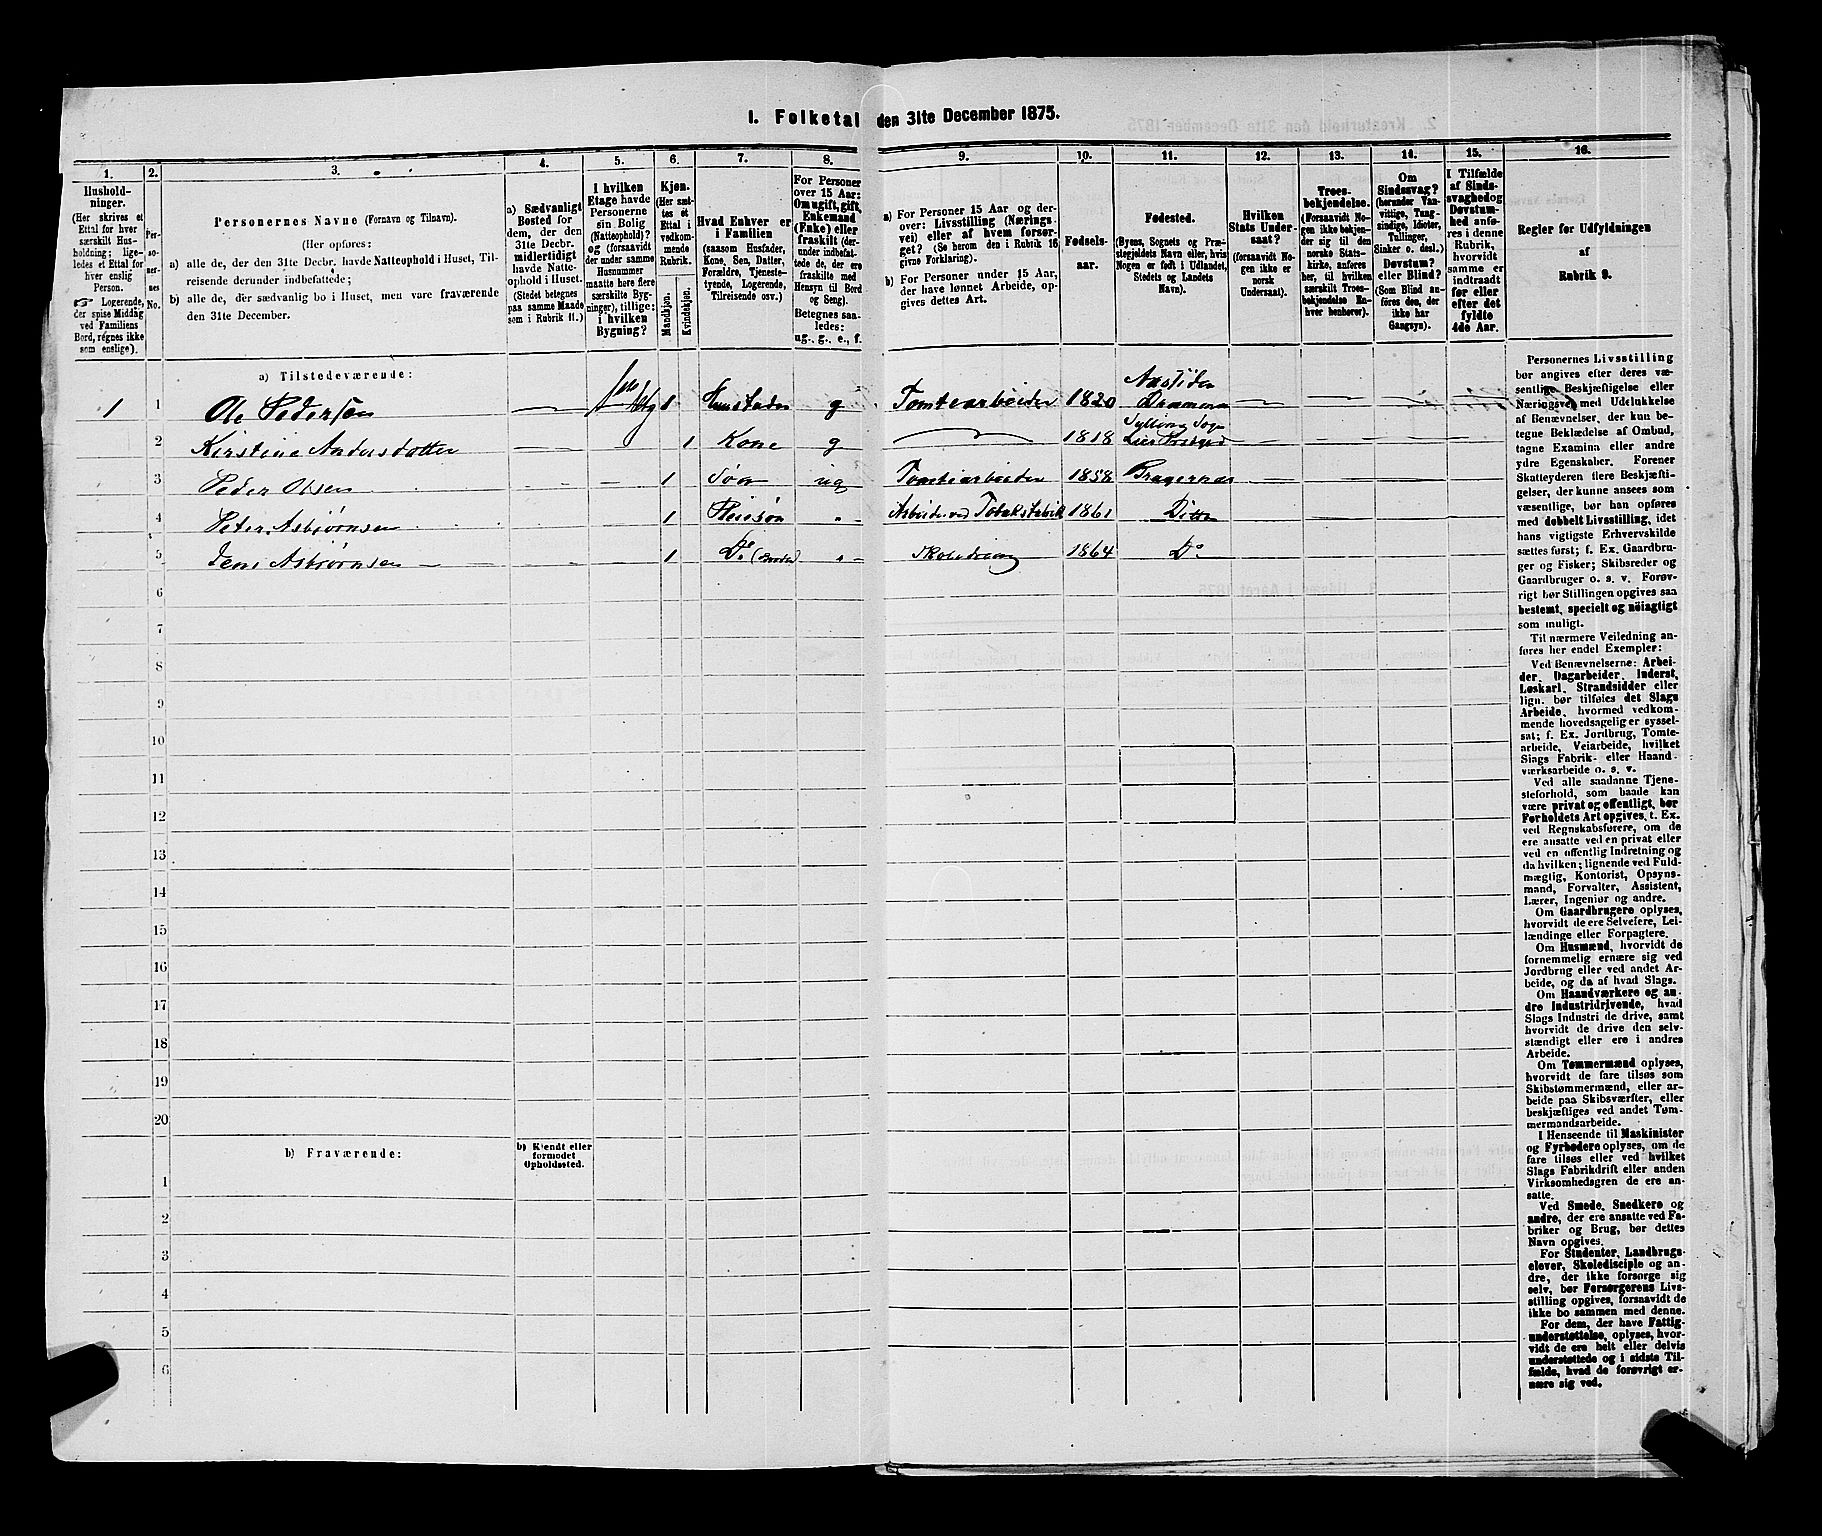 1. Folketal den 31te December 1875.
1. 2. 3. 4. 5. 6. 7. 8. 9. 10. 11. 12. 13. 14. 15. 16.
Hushold-
ninger.
(Her skrives et
Ettal for hver
særskilt Hus-
holdning; lige-
ledes et Ettal for
hver enslig
Person.
☞ Logerende,
der spise Middag
ved Familiens
Bord, regnes ikke
som enslige).
Per-
so-
ner-
nes
No.
Personernes Navne (Fornavn og Tilnavn).
(Her opføres:
a) alle de, der den 31te Decbr. havde Natteophold i Huset, Til-
reisende derunder indbefattede;
b) alle de, der sædvanlig bo i Huset, men vare fraværende
den 31te December.
a) Sædvanligt
Bosted for
dem, der den
31te Decbr.
midlertidigt
havde Natte-
ophold i Huset.
(Stedet betegnes
paa samme Maade
som i Rubrik 11.)
I hvilken
Etage havde
Personerne
sin Bolig
(Natteophold)?
og (forsaavidt
der under samme
Husnummer
maatte høre flere
særskilte Byg-
ninger), tillige:
i hvilken
Bygning?
Kjøn.
(Her sæt-
tes et
Ettal i
vedkom-
mende
Rubrik.
Mandkjøn.
Kvindekjøn.
Hvad Enhver er
i Familien
(saasom Husfader,
Kone, Søn, Datter,
Forældre, Tjeneste-
tyende, Logerende,
Tilreisende osv.)
For Personer
over 15 Aar:
Om ugift, gift,
Enkemand
(Enke) eller
fraskilt (der-
under indbefat-
tede de, der ere
fraskilte med
Hensyn til Bord
og Seng).
Betegnes saa-
ledes:
ug., g., e., f.
a) For Personer 15 Aar og der-
over: Livsstilling (Nærings-
vei) eller af hvem forsør-
get? (Se herom den i Rubrik 16
givne Forklaring).
b) For Personer under 15 Aar,
der have lønnet Arbeide, op-
gives dettes Art.
Fødsels-
aar.
Fødested.
(Byens, Sognets og Præ-
stegjeldets Navn eller, hvis
Nogen er født i Udlandet,
Stedets og Landets
Navn).
Hvilken
Stats Under-
saat?
(forsaavidt No-
gen ikke er
norsk
Undersaat).
Troes-
bekjendelse.
(Forsaavidt No-
gen ikke bekjen-
der sig til den
norske Stats-
kirke, anføres
her, til hvilken
særskilt Troes-
bekjendelse En-
hver henhører).
Om
Sindssvag?
(herunder Van-
vittige, Tung-
sindige, Idioter,
Tullinger,
Sinker o. desl.)
Døvstum?
eller Blind?
(Som Blind an-
føres den, der
ikke har
Gangsyn).
I Tilfælde
af Sinds-
svaghed og
Døvstum-
hed anfø-
res i denne
Rubrik,
hvorvidt
samme er
indtraadt
før eller
efter det
fyldte
4de Aar.
Regler for Udfyldningen
af
Rubrik 9.
a) Tilstedeværende:
1 1 Ole Pedersen 1 g Tomtearbeider 1820 Drammen
2 Kirstine Andersdatter 1 Kone g 1818 Sylling Sogn
3 Peder Olsen 1 Søn ug Tomtearbeider 1858 Bragernæs
4 Peter Asbjørnsen 1 Pleiesøn „ Arbeider ved Tobaksfabrik 1861 Ditto
5 Jens Asbjørnsen 1 Do „ Skoledreng 1864 Do
6
7
8
9
10
11
12
13
14
15
16
17
18
19
20
b) Fraværende:
b) Kjendt eller
formodet
Opholdssted.
1
2
3
4
5
6
Personernes Livsstilling
bør angives efter deres væ-
sentlige Beskjæftigelse eller
Næringsvei med Udelukkelse
af Benævnelser, der kun be-
tegne Beklædelse af Ombud,
tagne Examina eller andre
ydre Egenskaber. Forener
Skatteyderen flere Beskjæfti-
gelser, der kunne ansees som
væsentlige, bør han opføres
med dobbelt Livsstilling, idet
hans vigtigste Erhvervskilde
sættes først; f. Ex. Gaardbru-
ger og Fisker; Skibsreder og
Gaardbruger o. s. v. Forøv-
rigt bør Stillingen opgives saa
bestemt, specielt og nøiagtigt
som muligt.
Til nærmere Veiledning an-
føres her endel Exempler:
Ved Benævnelserne: Arbei-
der, Dagarbeider, Inderst,
Løskarl, Strandsidder eller
lign. bør tilføies det Slags
Arbeide, hvormed vedkom-
mende hovedsagelig er syssel-
sat; f. Ex. Jordbrug, Tomte-
arbeide, Veiarbeide, hvilket
Slags Fabrik- eller Haand-
værksarbeide o. s. v.
Ved alle saadanne Tjene-
steforhold, som baade kan
være privat og offentligt, bør
Forholdets Art opgives, t. Ex.
ved Regnskabsførere, om de
ere ansatte ved en privat eller
ved en offentlig Indretning og
da hvilken; lignende ved Fuld-
mægtig, Kontorist, Opsyns-
mand, Forvalter, Assistent,
Lærer, Ingeniør og andre.
Om Gaardbrugere oplyses,
hvorvidt de ere Selveiere, Lei-
lændinge eller Forpagtere.
Om Husmænd, hvorvidt de
fornemmelig ernære sig ved
Jordbrug eller ved andet Ar-
beide, og da af hvad Slags.
Om Haandværkere og an-
dre Industridrivende, hvad
Slags Industri de drive, samt
hvorvidt de drive den selv-
stændigt eller ere i andres
Arbeide.
Om Tømmermænd oplyses,
hvorvidt de fare tilsøs som
Skibstømmermænd, eller ar-
beide paa Skibsværfter, eller
beskjæftiges ved andet Tøm-
mermandsarbeide.
I Henseende til Maskinister
og Fyrbødere oplyses, om de
fare tilsøs eller ved hvilket
Slags Fabrikdrift eller anden
Virksomhedsgren de ere an-
satte.
Ved Smede, Snedkere og
andre, der ere ansatte ved Fa-
briker og Brug, bør dettes
Navn opgives.
For Studenter, Landbrugs-
elever, Skoledisciple og an-
dre, der ikke forsørge sig
selv, bør Forsørgerens Livs-
stilling opgives, forsaavidt de
ikke bo sammen med denne.
For dem, der have Fattig-
understøttelse, oplyses, hvor-
vidt de ere helt eller delvis
understøttede og i sidste Til-
fælde, hvad de forøvrigt er-
nære sig ved.